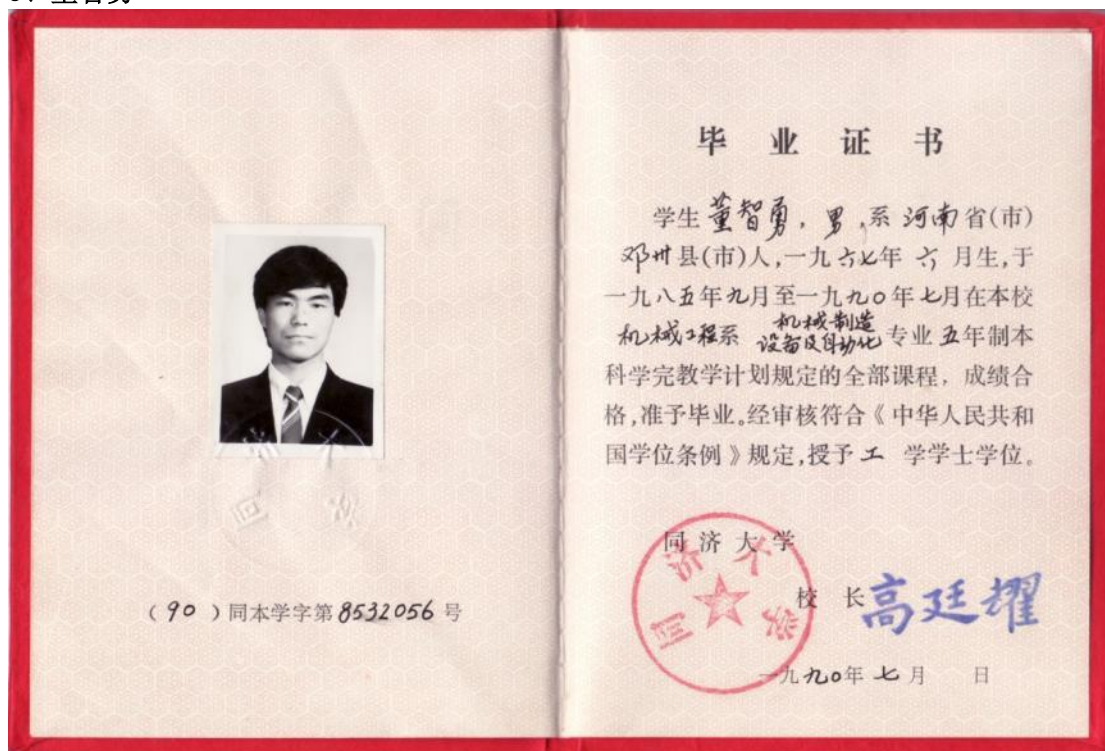 (90)同本学字第8532056号
毕业证书
学生董智勇，男，系河南省(市)
邓州县(市)人，一九六七年六月生，于
一九八五年九月至一九九〇年七月在本校
机械工程系 机械制造设备及自动化 专业五年制本
科学完教学计划规定的全部课程，成绩合
格，准予毕业。经审核符合《中华人民共和
国学位条例》规定，授予工学学士学位。
同济大学
同济大学
校长高廷耀
一九九〇年七月 日